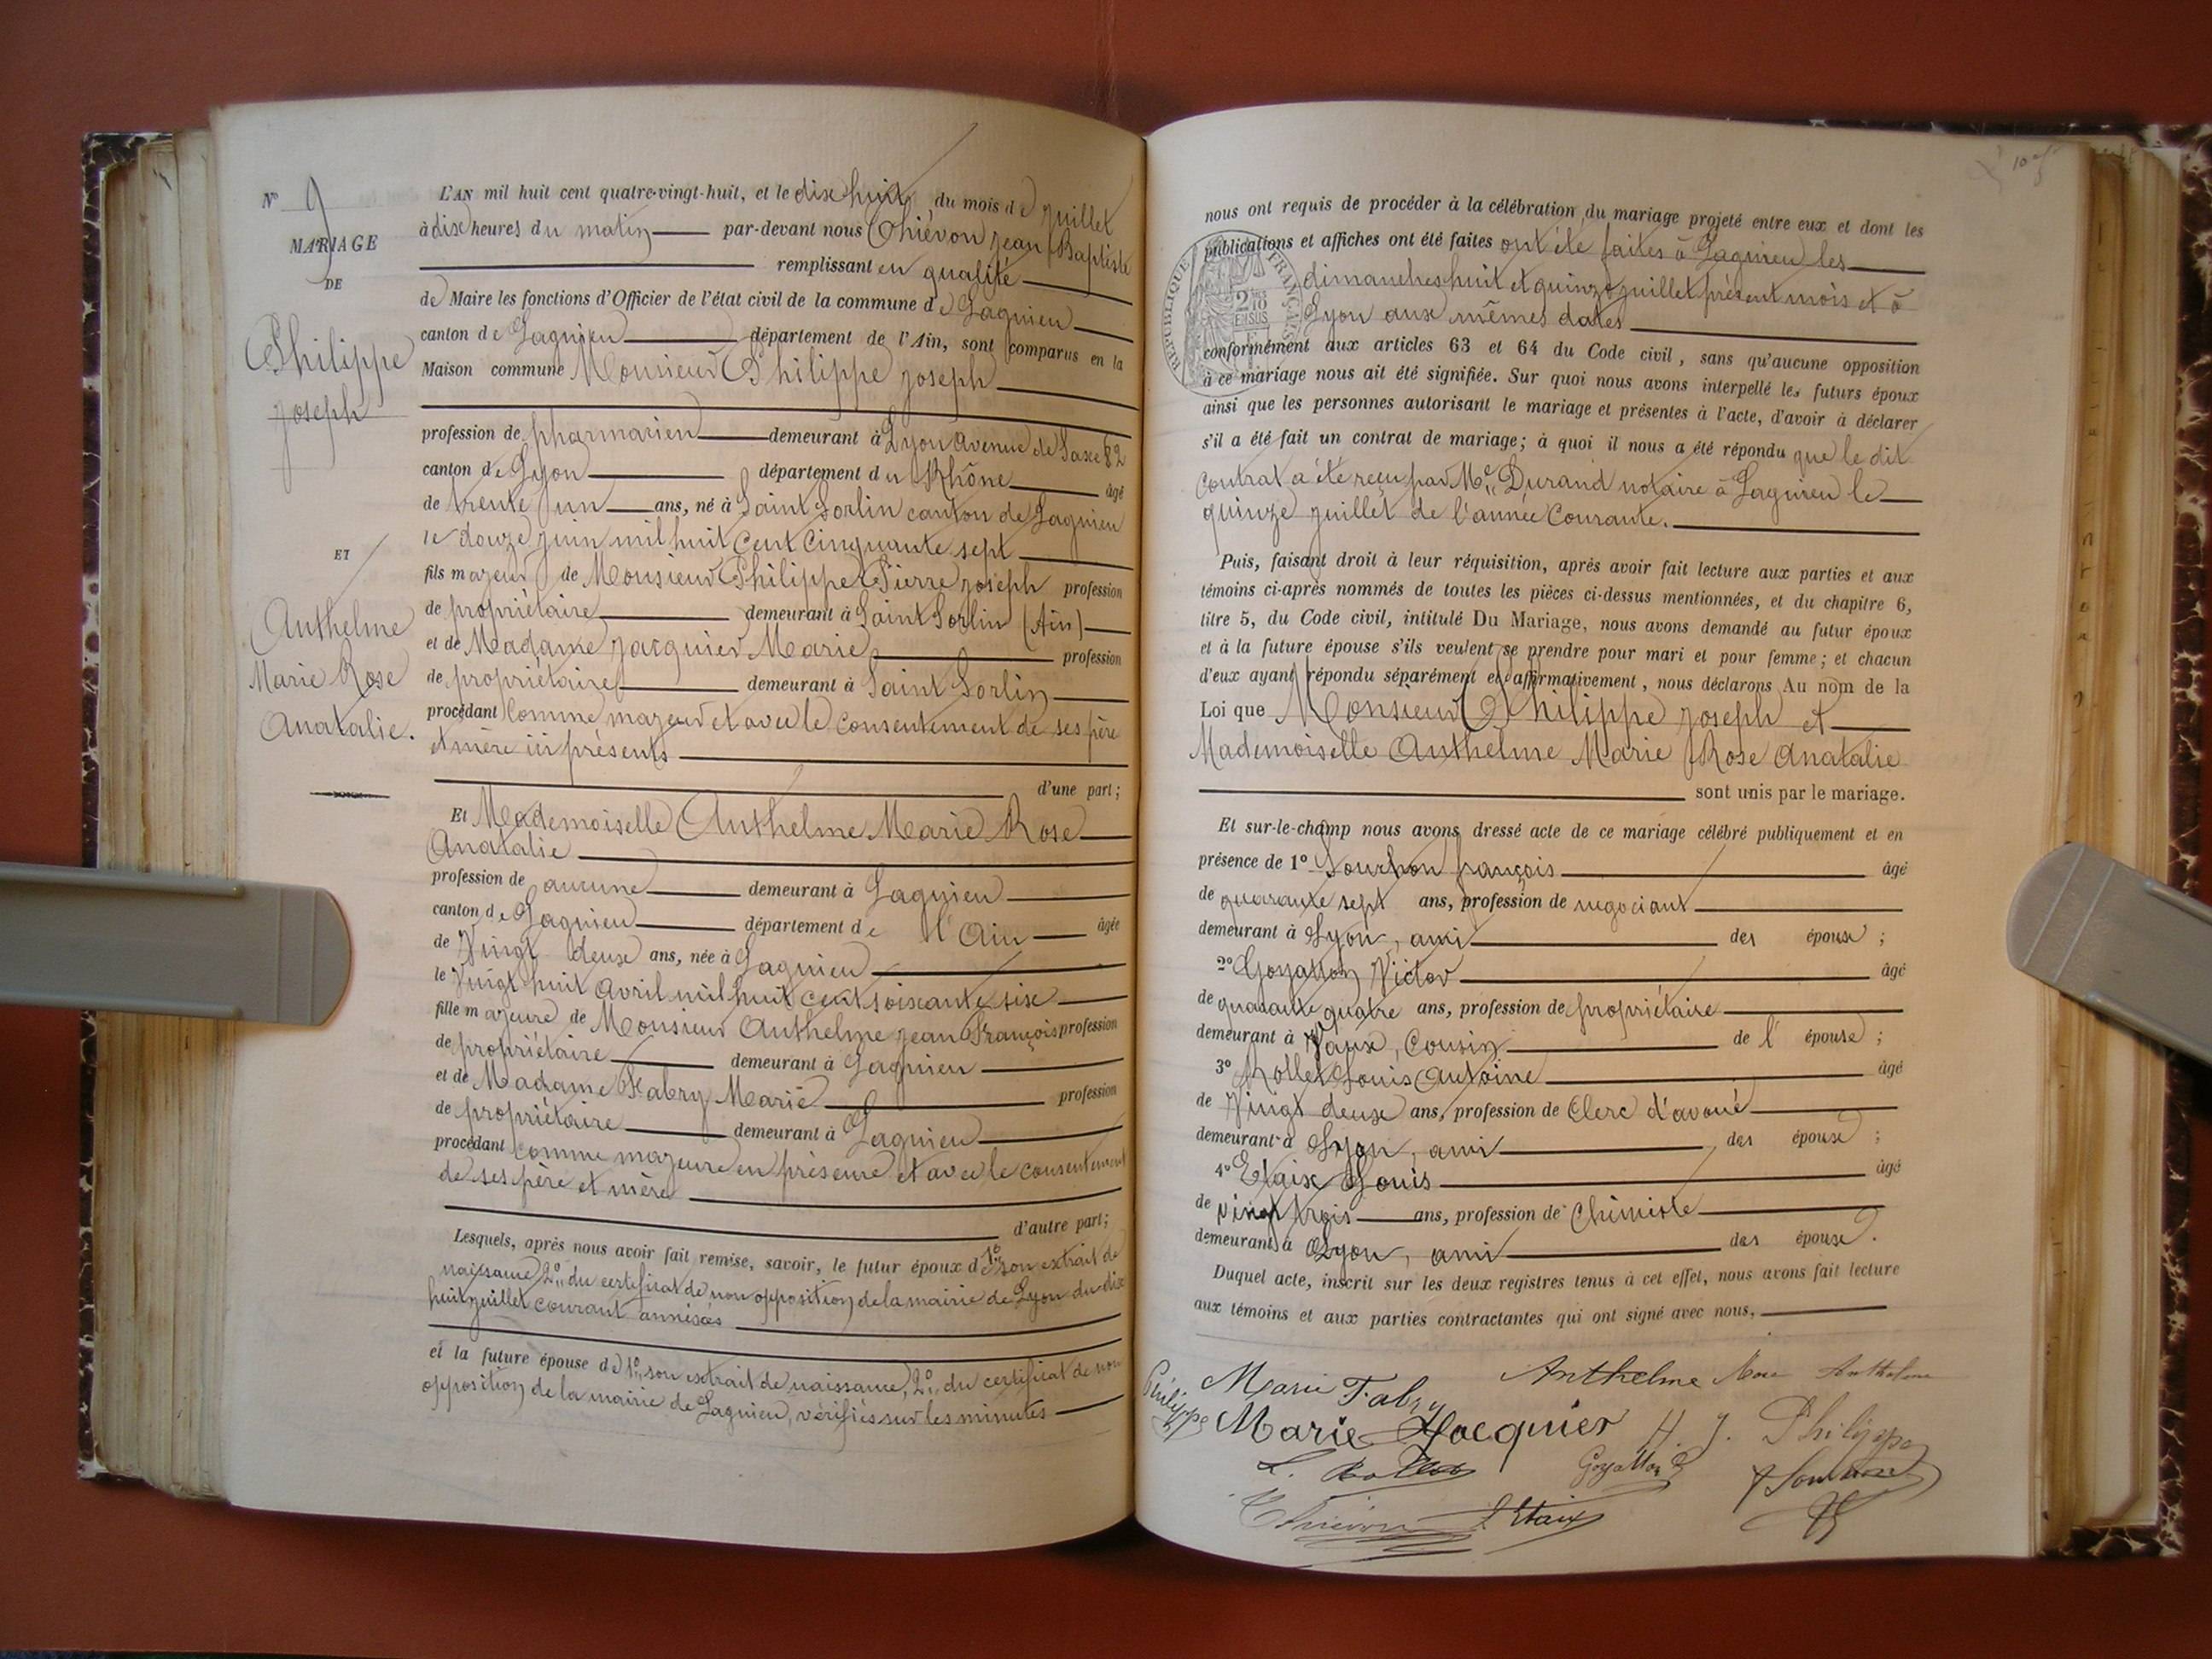 N° 9
MARIAGE
DE
Philippe
Joseph
ET
Anthelme
Marie Rose
Anatalie.
L'AN mil huit cent quatre-vingt-huit, et le dix huit du mois de juillet
à dix heures du matin par-devant nous Thiévon Jean Baptiste
remplissant en qualité
de Maire les fonctions d'Officier de l'état civil de la commune de Lagnieu
canton de Lagnieu département de l'Ain, sont comparus en la
Maison commune Monsieur Philippe Joseph
profession de pharmacien demeurant à Lyon avenue de Saxe 82
canton de Lyon département du Rhône âgé
de trente un ans, né à Saint Sorlin canton de Lagnieu
le douze juin mil huit cent cinquante sept
fils majeur de Monsieur Philippe Pierre Joseph profession
de propriétaire demeurant à Saint Sorlin (Ain)
et de Madame Jacquier Marie profession
de propriétaire demeurant à Saint Sorlin
procédant comme majeur et avec le consentement de ses père
et mère ici présents
d'une part;
Et Mademoiselle Anthelme Marie Rose
Anatalie
profession de aucune demeurant à Lagnieu
canton de Lagnieu département de l'Ain âgée
de vingt deux ans, née à Lagnieu
le vingt huit avril mil huit cent soixante six
fille majeure de Monsieur Anthelme Jean François profession
de propriétaire demeurant à Lagnieu
et de Madame Fabry Marie profession
de propriétaire demeurant à Lagnieu
procédant comme majeure en présence et avec le consentement
de ses père et mère
d'autre part;
Lesquels, après nous avoir fait remise, savoir, le futur époux de 1° son extrait de
naissance, 2° du certificat de non opposition de la mairie de Lyon du dix
huit juillet courant annéxés
et la future épouse de 1° son extrait de naissance, 2° du certificat de non
opposition de la mairie de Lagnieu, vérifiés sur les minutes
nous ont requis de procéder à la célébration du mariage projeté entre eux et dont les
publications et affiches ont été faites ont été faites à Lagnieu les
dimanches huit et quinze juillet présent mois et à
Lyon aux mêmes dates
RÉPUBLIQUE FRANÇAISE
2/10 EN SUS
conformément aux articles 63 et 64 du Code civil, sans qu'aucune opposition
à ce mariage nous ait été signifiée. Sur quoi nous avons interpellé les futurs époux
ainsi que les personnes autorisant le mariage et présentes à l'acte, d'avoir à déclarer
s'il a été fait un contrat de mariage; à quoi il nous a été répondu que le dit
contrat a été reçu par Me Durand notaire à Lagnieu le
quinze juillet de l'année courante.
Puis, faisant droit à leur réquisition, après avoir fait lecture aux parties et aux
témoins ci-après nommés de toutes les pièces ci-dessus mentionnées, et du chapitre 6,
titre 5, du Code civil, intitulé Du Mariage, nous avons demandé au futur époux
et à la future épouse s'ils veulent se prendre pour mari et pour femme; et chacun
d'eux ayant répondu séparément et affirmativement, nous déclarons Au nom de la
Loi que Monsieur Philippe Joseph et
Mademoiselle Anthelme Marie Rose Anatalie
sont unis par le mariage.
Et sur-le-champ nous avons dressé acte de ce mariage célébré publiquement et en
présence de 1° Sourhon françois âgé
de quarante sept ans, profession de négociant
demeurant à Lyon, ami des époux;
2° Goyatton Victor âgé
de quarante quatre ans, profession de propriétaire
demeurant à Vaux, cousin de l'épouse;
3° Rollet Louis Antoine âgé
de vingt deux ans, profession de Clerc d'avoué
demeurant à Lyon, ami des époux;
4° Etaix Louis âgé
de vingt trois ans, profession de Chimiste
demeurant à Lyon, ami des époux.
Duquel acte, inscrit sur les deux registres tenus à cet effet, nous avons fait lecture
aux témoins et aux parties contractantes qui ont signé avec nous,
Philippe Marie Fabry Anthelme Anthelme
Marie Jacquier J. Philippe
L. Rollet Goyatton
Thiévon L Etaix